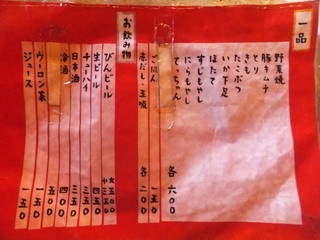 一品
野菜焼
豚キムチ
とり
きも
たこぶつ
いか下足
ほたて
すじもやし
にらもやし
てっちゃん
各 六〇〇
ごはん 一五〇
赤だし・玉吸 各 二〇〇
お飲み物
びんビール 大 五〇〇
中 三五〇
生ビール 四五〇
チューハイ 三五〇
日本酒 三五〇
冷酒 四〇〇
ウーロン茶 一五〇
ジュース 一五〇